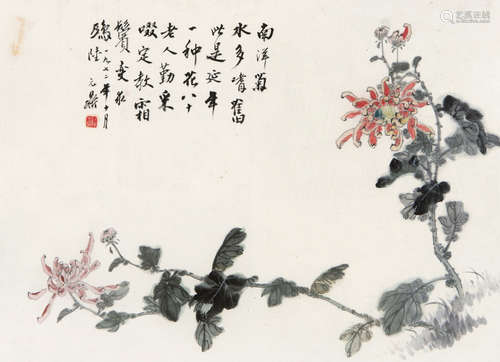 南洋菊
水多嗜舊
此是延年
一種花八十
老人勤采
啜定教霜
鬢變成
鴉
一九七二年十月
陸元鼎